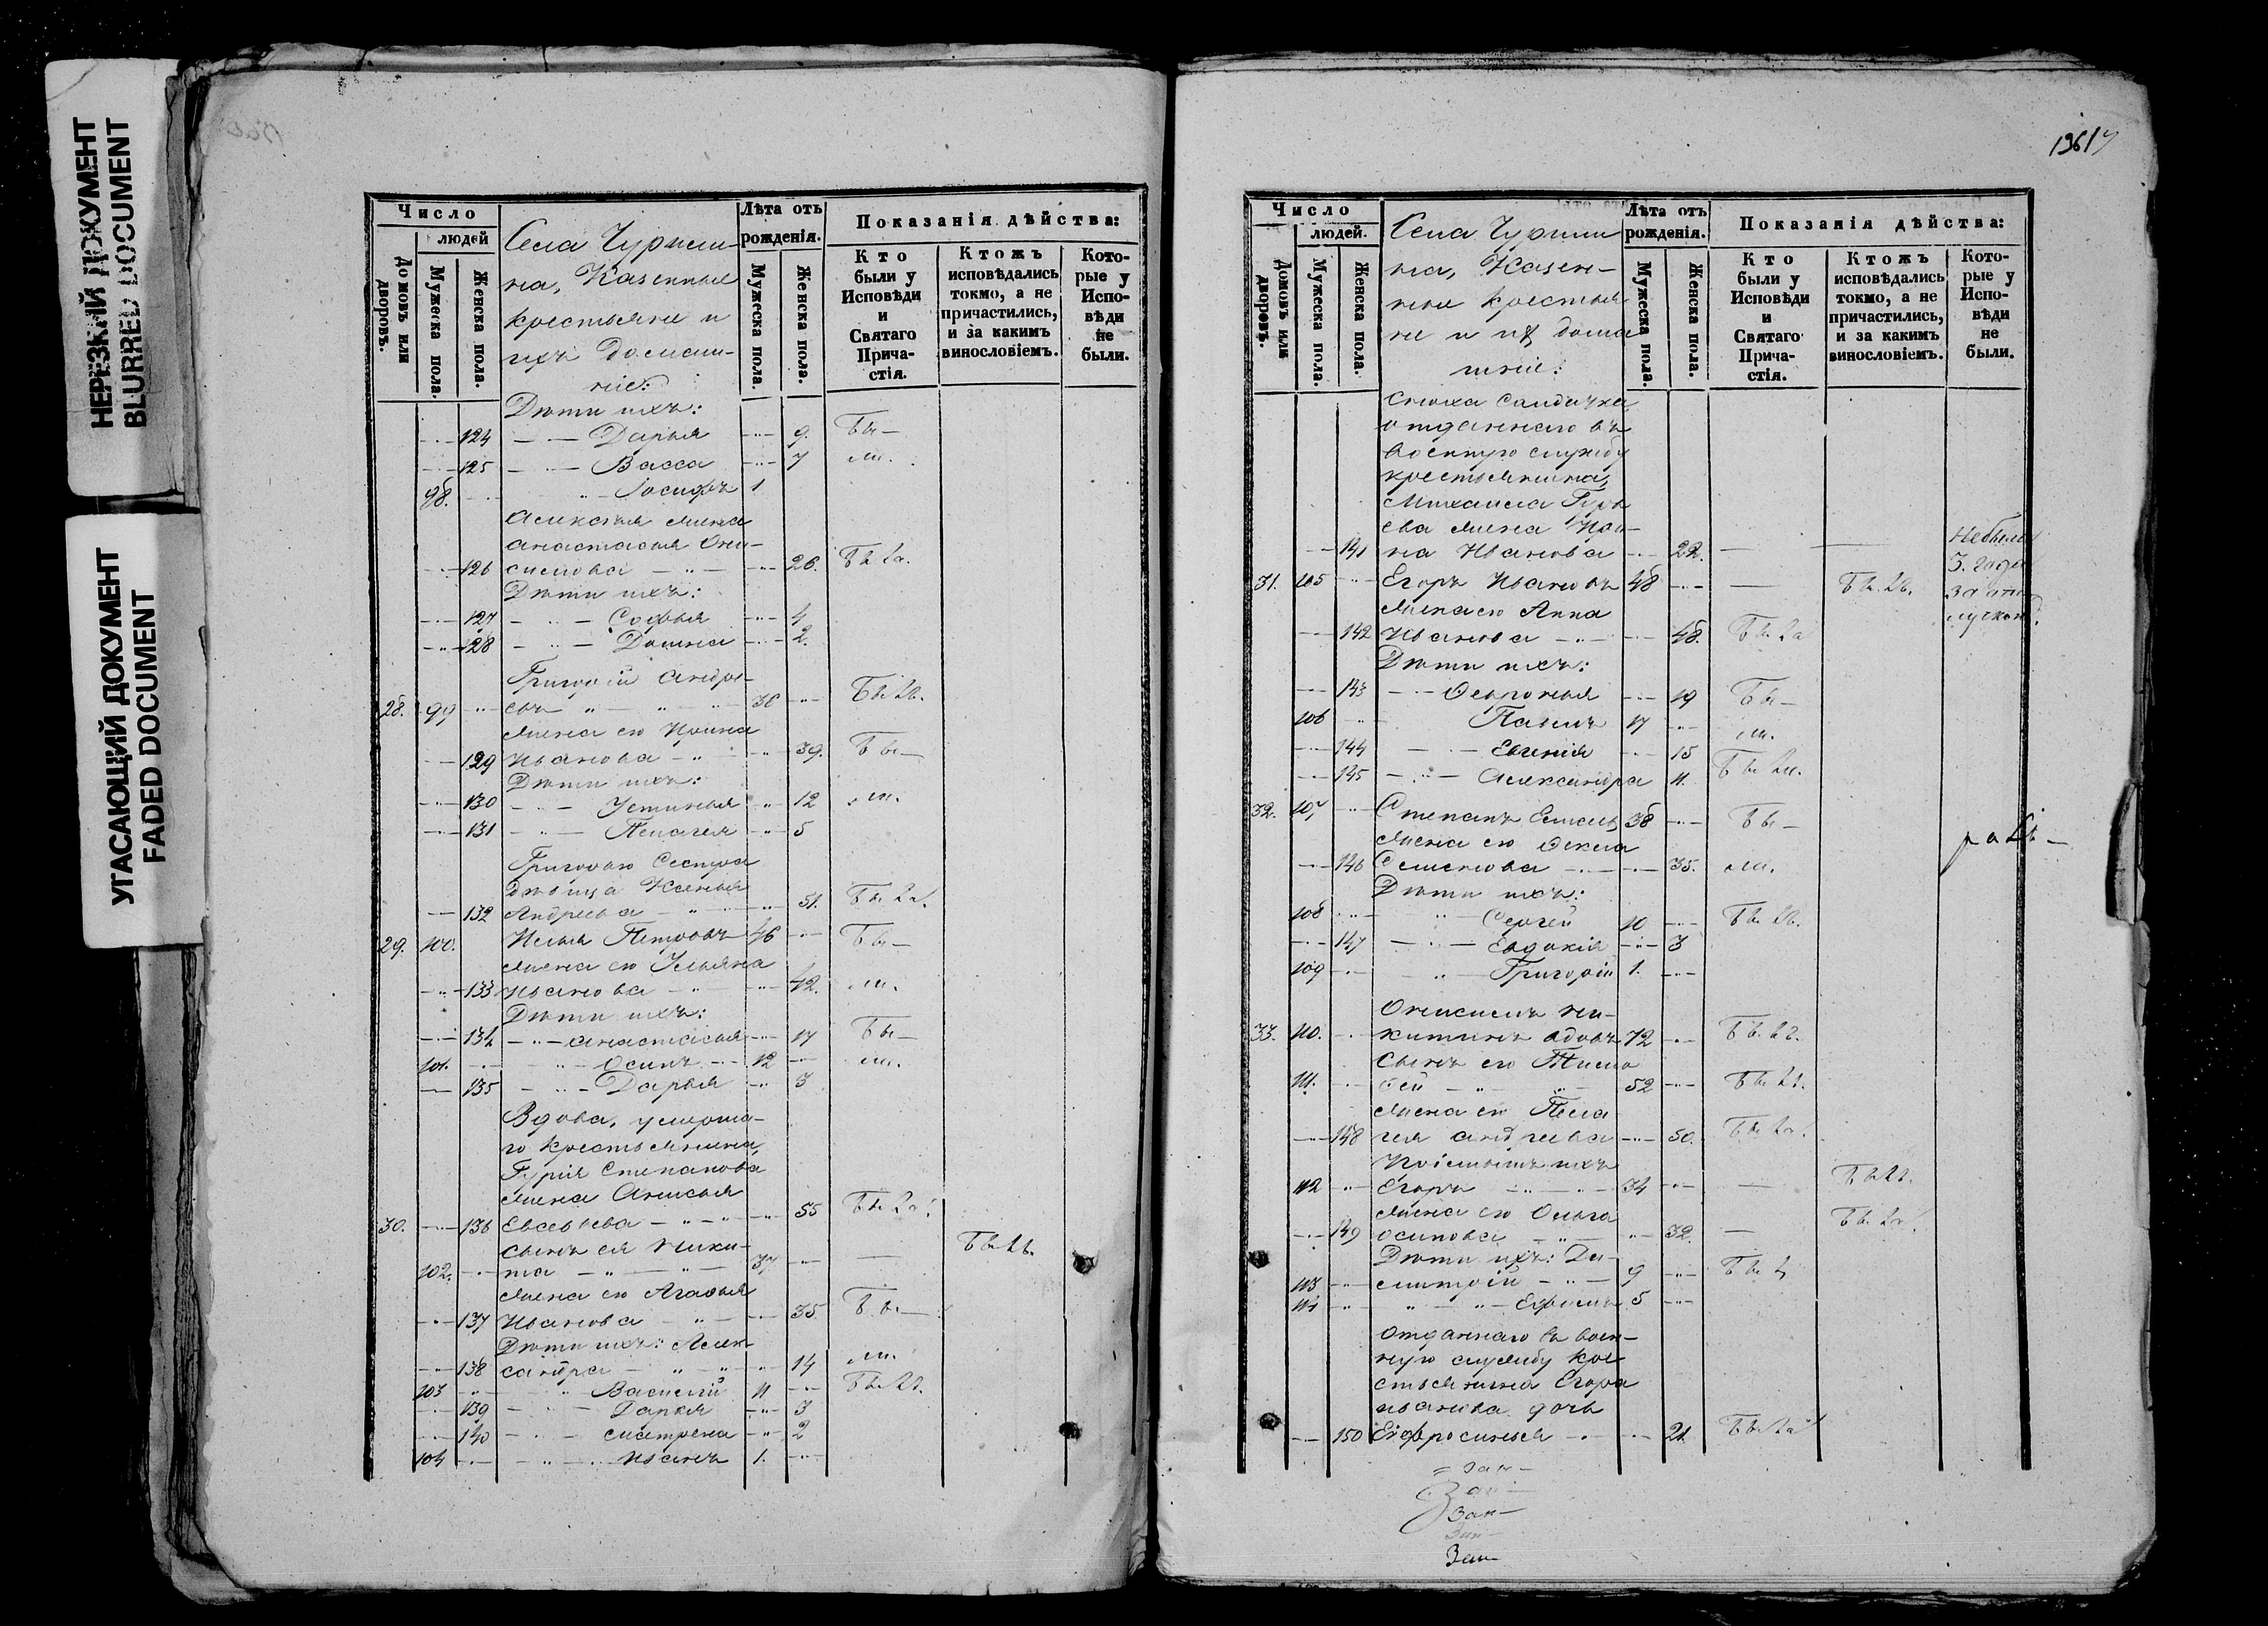 НЕРЕЗКИЙ ДОКУМЕНТ
BLURRED DOCUMENT
УГАСАЮЩИЙ ДОКУМЕНТ
FADED DOCUMENT
Число
людей
Домовъ или дворовъ.
Мужеска пола.
Женска пола.
Села Чурили-
на, Казенные
крестьяне и
ихъ домаш-
ніе:
Лѣта отъ
рожденія.
Мужеска пола.
Женска пола.
Показанія дѣйства:
Кто
были у
Исповѣди
и
Святаго
Прича-
стія.
Ктожъ
исповѣдались
токмо, а не
причастились,
и за какимъ
винословіемъ.
Кото-
рые у
Испо-
вѣди
не
были.
Дѣти ихъ:
124 Дарья 9. Бы-
125 Васса 7 ли.
98. Іосифъ 1
Алексѣя жена
Анастасья Они-
126 симова 26. Была.
Дѣти ихъ:
127 Софья 4
128 Домна 2.
Григорій Андре-
28. 99 евъ 36 Былъ.
Жена его Ирина
129 Иванова 39. Бы-
Дѣти ихъ:
130 Устинья 12 ли.
131 Пелагея 5
Григорью сестра
дѣвица Ксенья
132 Андреева 51. Была.
29. 100. Илья Петровъ 46 Бы-
Жена его Ульяна
133 Иванова 42. ли.
Дѣти ихъ:
134 Анастасья 17 Бы-
101. Осипъ 12 ли.
135 Дарья 3
Вдова, умерша-
го крестьянина,
Гурія Степанова
жена Анисья
30. 136 Евсевьева 55 Была.
Сынъ ея Ники-
102. та 37 Былъ.
Жена его Агафья
137 Иванова 35 Бы-
Дѣти ихъ: Алек-
138 сандра 14 ли.
103 Василій 11 Былъ.
139 Дарья 3
140 Матрена 2
104 Иванъ 1.
1361
Число
людей.
Домовъ или дворовъ.
Мужеска пола.
Женска пола.
Села Чурили
на, Казен-
ные крестья
не и ихъ дома
шніе:
Лѣта отъ
рожденія.
Мужеска пола.
Женска пола.
Показанія дѣйства:
Кто
были у
Исповѣди
и
Святаго
Прича-
стія.
Ктожъ
исповѣдались
токмо, а не
причастились,
и за какимъ
винословіемъ.
Кото-
рые у
Испо-
вѣди
не
были.
Сноха солдатка
отданнаго въ
военную службу
крестьянина,
Михаила Гурь
ева жена Ири-
141 на Иванова 22. Небыла
3. года
за от
лучкой.
31. 105 Егоръ Ивановъ 48 Былъ.
Жена его Анна
142 Иванова 48. Была
Дѣти ихъ:
143 19 Бы-
106 Павелъ 17 ли.
144 Евгенія 15
145 Александра 11. Были.
32. 107 Степанъ Емель 38 Бы-
Жена его Фекла
146 Семенова 35. ли.
Дѣти ихъ:
108 Сергей 10 Былъ.
147 Евдокія 3
109 Григорій 1.
Онисимъ Ни-
33. 110. китинъ вдовъ 72 Былъ.
Сынъ его Тимо
111. фей 52 Былъ.
Жена его Пела
148 гея Андреева 50. Была.
Пріемышъ ихъ
112 Егоръ 34 Былъ.
Жена его Ольга
149 Осипова 32. Была.
Дѣти ихъ: Ди-
113 митрій 9 Былъ
114 Ефимъ 5
Отданнаго въ воен-
ную службу кре
стьянина Егора
Иванова дочь
150 Ефросинья 21. Была
Зак-
Зак-
Зак-